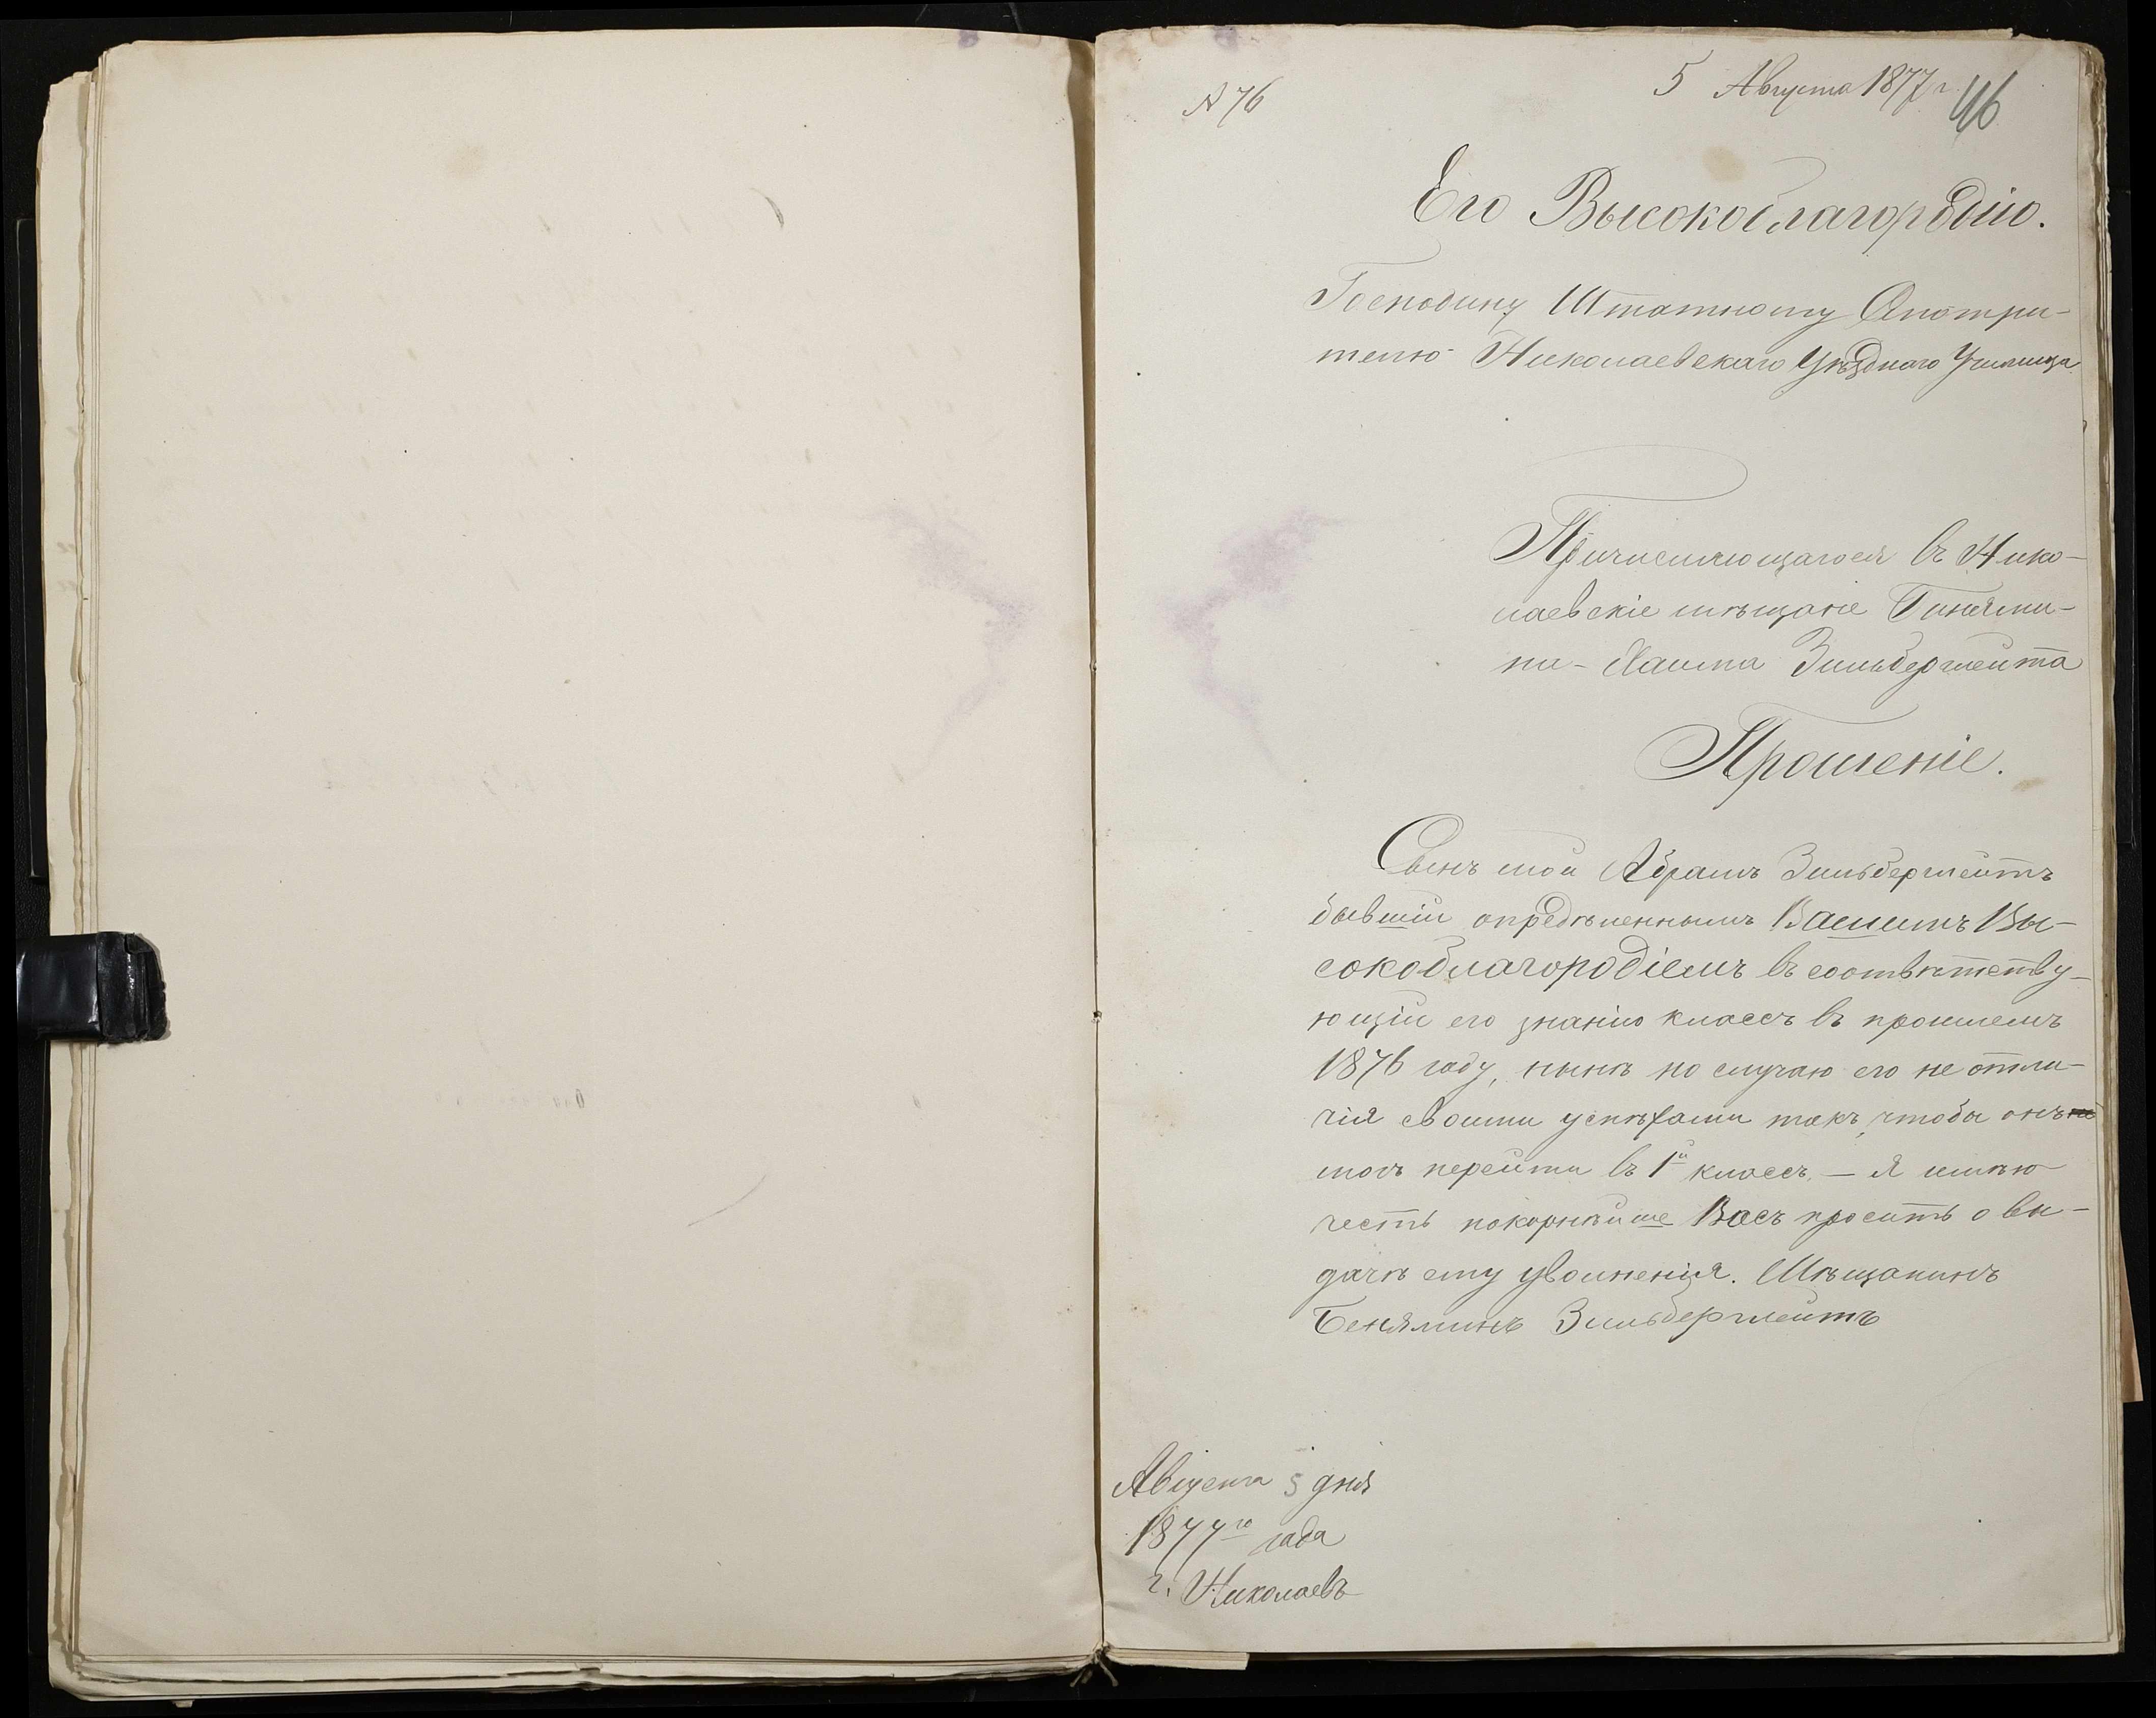 № 76
5 Августа 1877 г.
46
Его Высокоблагородію.
Господину Штатному Смотри-
телю Николаевскаго Уѣзднаго Училища
Причисляющагося въ Нико-
лаевскіе мѣщане Бинями-
на-Хаима Зильберглейта
Прошеніе.
Сынъ мой Абрамъ Зильберглейтъ
бывшій опредѣленнымъ Вашимъ Вы-
сокоблагородіемъ въ соотвѣтству-
ющій его знанію классъ въ прошлемъ
1876 году, нынѣ по случаю его не отли-
чія своими успѣхами такъ, чтобы онъ
могъ перейти въ 1й классъ, — я имѣю
честь покорнѣйше Васъ просить о вы-
дачѣ ему увольненія. Мѣщанинъ
Бенямин Зильберглейтъ
Августа 5 дня
1877го года
г. Николаевъ